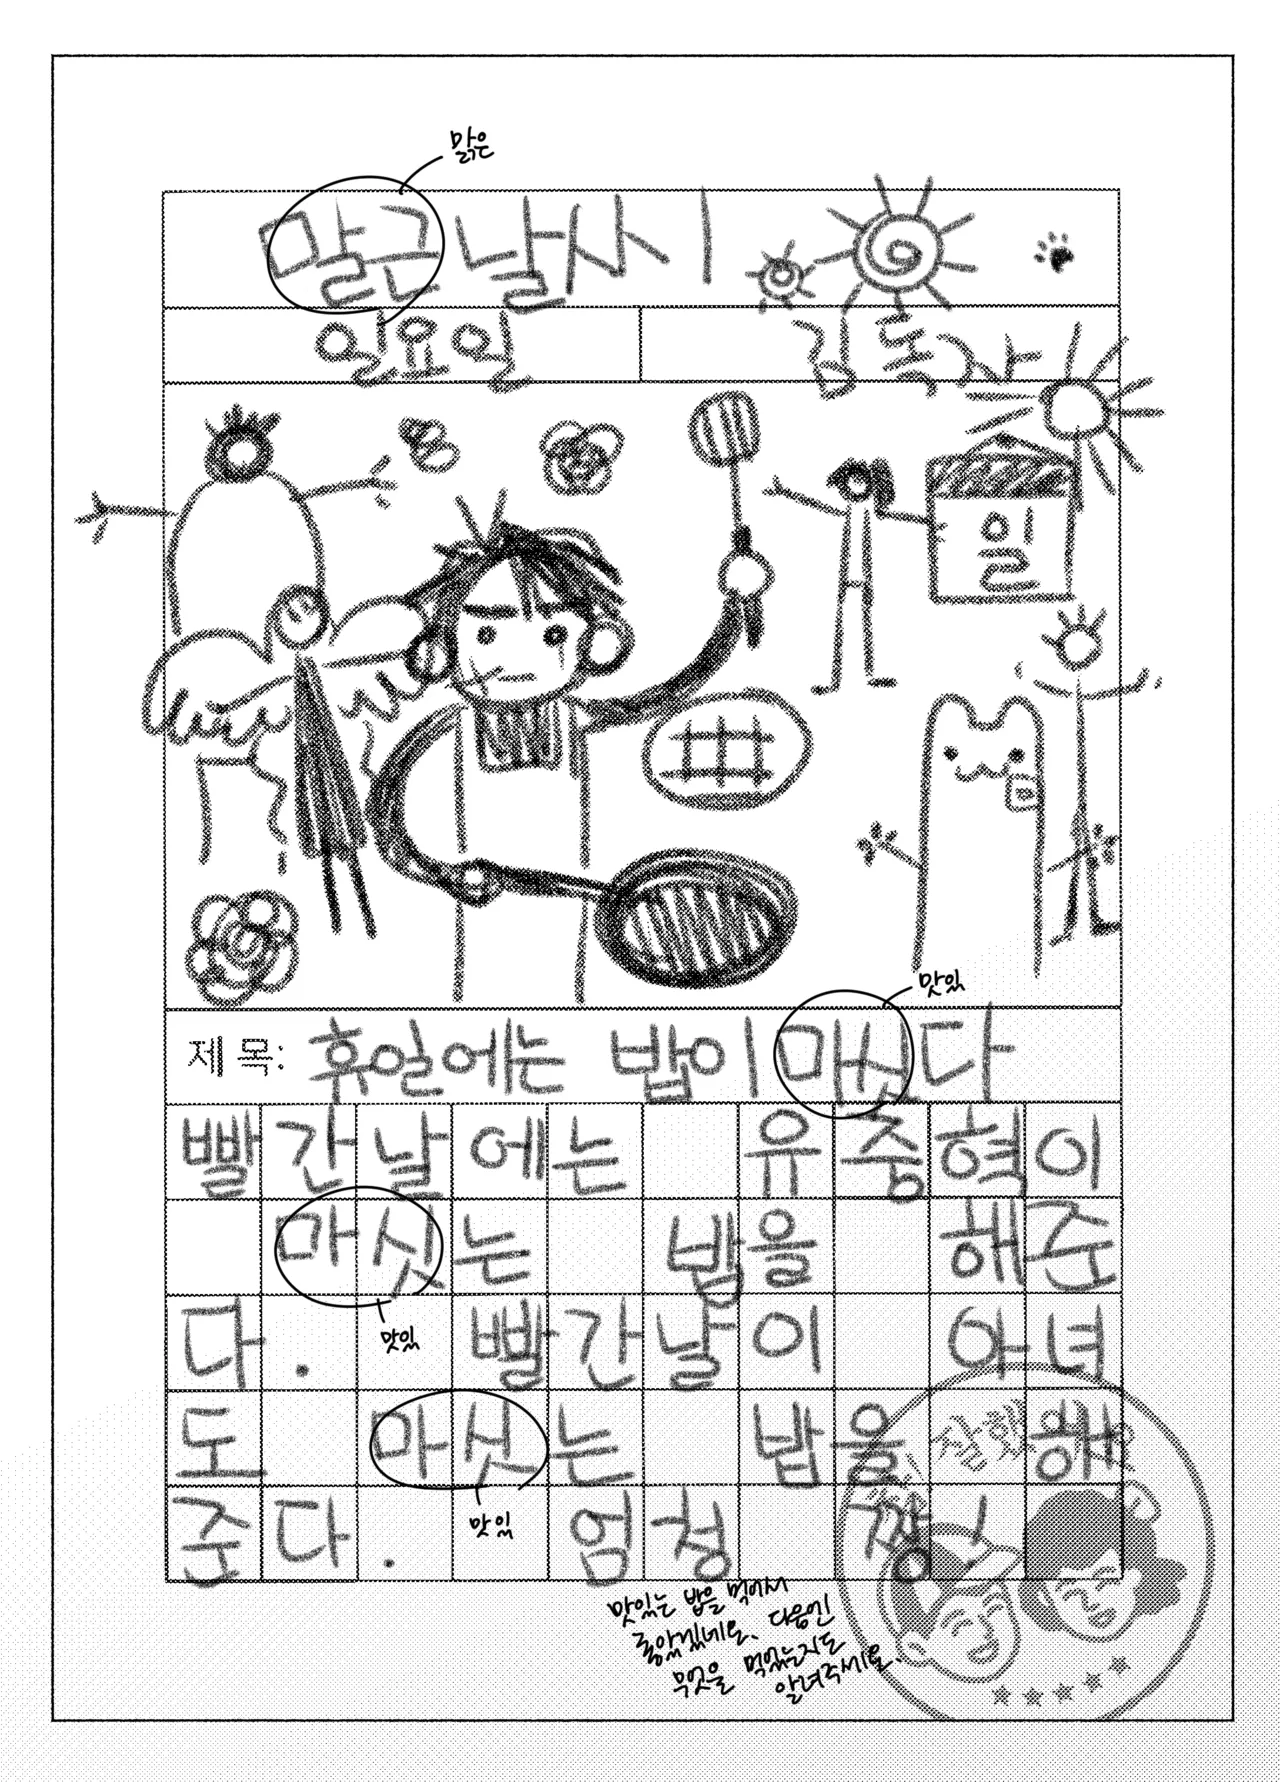 맑은
말근 날씨
일요일 김독자
일
맛있
제 목: 휴일에는 밥이 마싣다
빨간날에는 유중혁이
마싯는 밥을 해준
맛있
다. 빨간날이 아녀
도 마싯는 밥을 해
맛있
준다. 엄청
맛있는 밥을 먹어서
좋았겠네요. 다음엔
무엇을 먹었는지도
알려주세요.